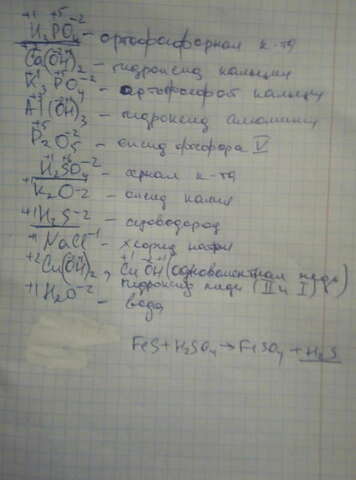 +1 +5 -2
H₃PO₄ - ортофосфорная к-та
Ca(OH)₂ - гидроксид кальция
K₃PO₄ - ортофосфат кальция
Al(OH)₃ - гидроксид алюминия
P₂O₅ - оксид фосфора V
H₂SO₄ - серная к-та
K₂O - оксид калия
H₂S - сероводород
NaCl - хлорид натрия
Cu(OH)₂, CuOH (одновалентная медь)
гидроксид меди (II и I)
H₂O - вода
FeS + H₂SO₄ → FeSO₄ + H₂S